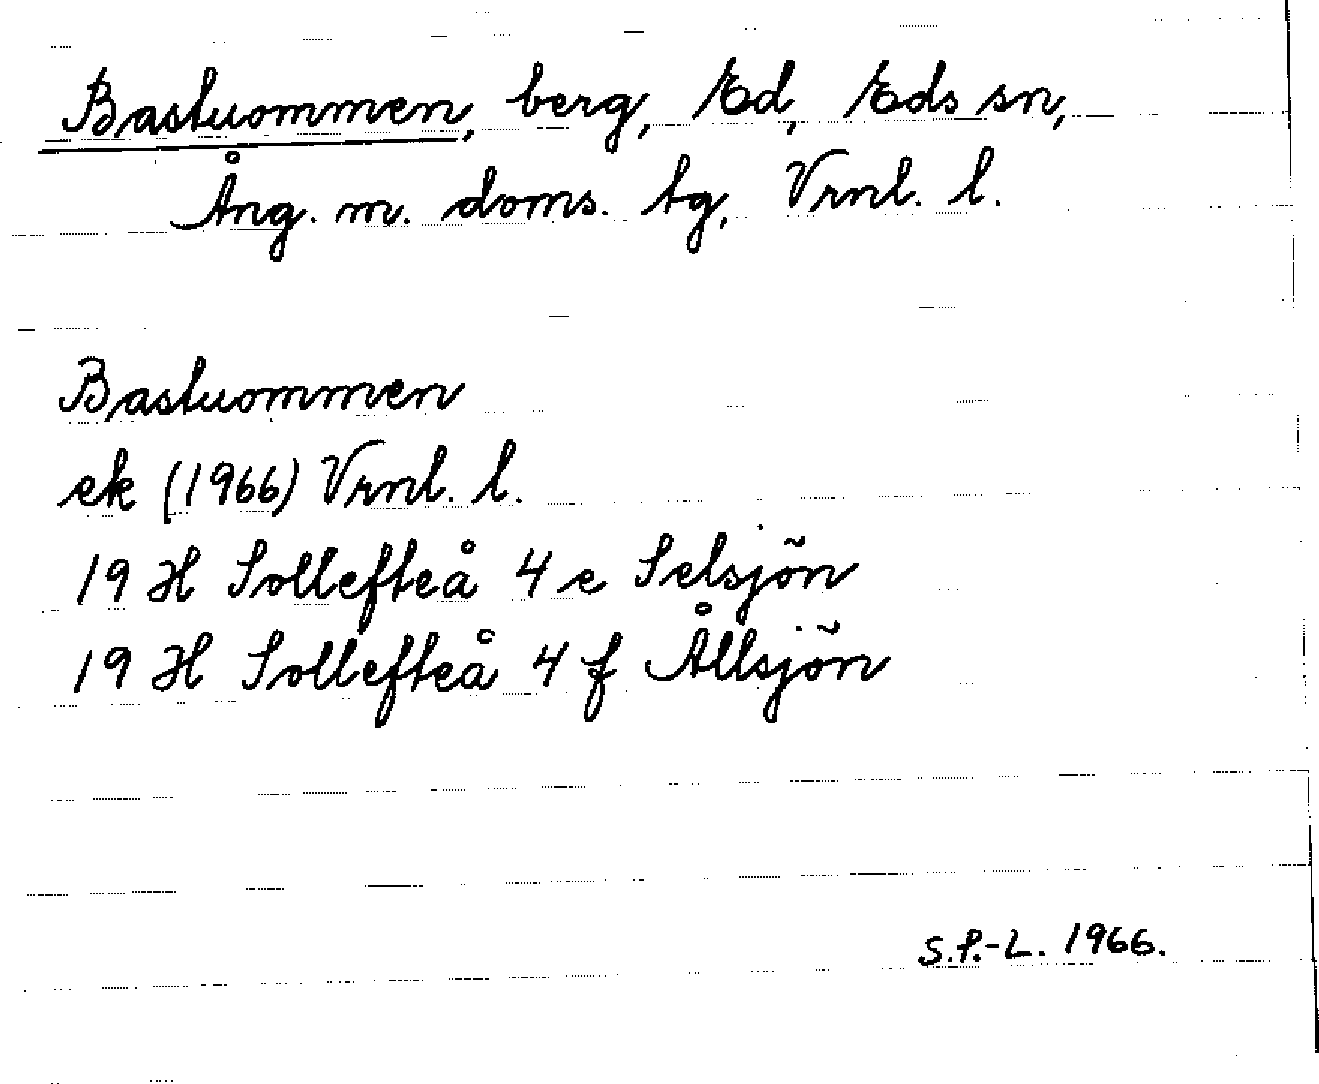 Bastuommen, berg, Ed, Eds sn,
Ång. m. doms. tg, Vrnl. l.
Bastuommen
ek (1966) Vrnl. l.
19 H Sollefteå 4 e Selsjön
19 H Sollefteå 4 f Ållsjön
S.P.-L. 1966.